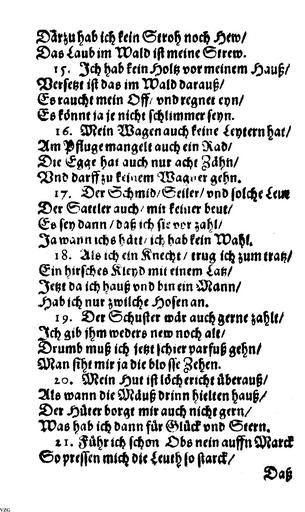 Darzu hab ich kein Stroh noch Hew/
Das Laub im Wald ist meine Strew.
15. Jch hab kein Holtz vor meinem Hauß/
Versetzt ist das im Wald darauß/
Es raucht mein Off/ vnd regnet eyn/
Es könnt ja je nicht schlimmer seyn.
16. Mein Wagen auch keine Leytern hat/
Am Pfluge mangelt auch ein Rad/
Die Egge hat auch nur acht Zähn/
Vnd darff zu keinem Wagner gehn.
17. Der Schmid/ Seiler/ vnd solche Leut
Der Sattler auch/ mit keiner beut/
Es sey dann/ daß ich sie vor zahl/
Ja wann ichs hätt/ ich hab kein Wahl.
18. Als ich ein Knecht/ trug ich zum tratz/
Ein hirsches Kleyd mit einem Latz/
Jetzt da ich hauß vnd bin ein Mann/
Hab ich nur zwilche Hosen an.
19. Der Schuster wär auch gerne zahlt/
Jch gib jhm weders new noch alt/
Drumb muß ich jetzt schier parfuß gehn/
Man siht mir ja die blosse Zehen.
20. Mein Hut ist löchericht überauß/
Als wann die Mäuß drinn hielten hauß/
Der Hüter borgt mir auch nicht gern/
Was hab ich dann für Glück vnd Stern.
21. Führ ich schon Obs nein auffn Marck
So pressen mich die Leuth so starck/
Daß
VZG